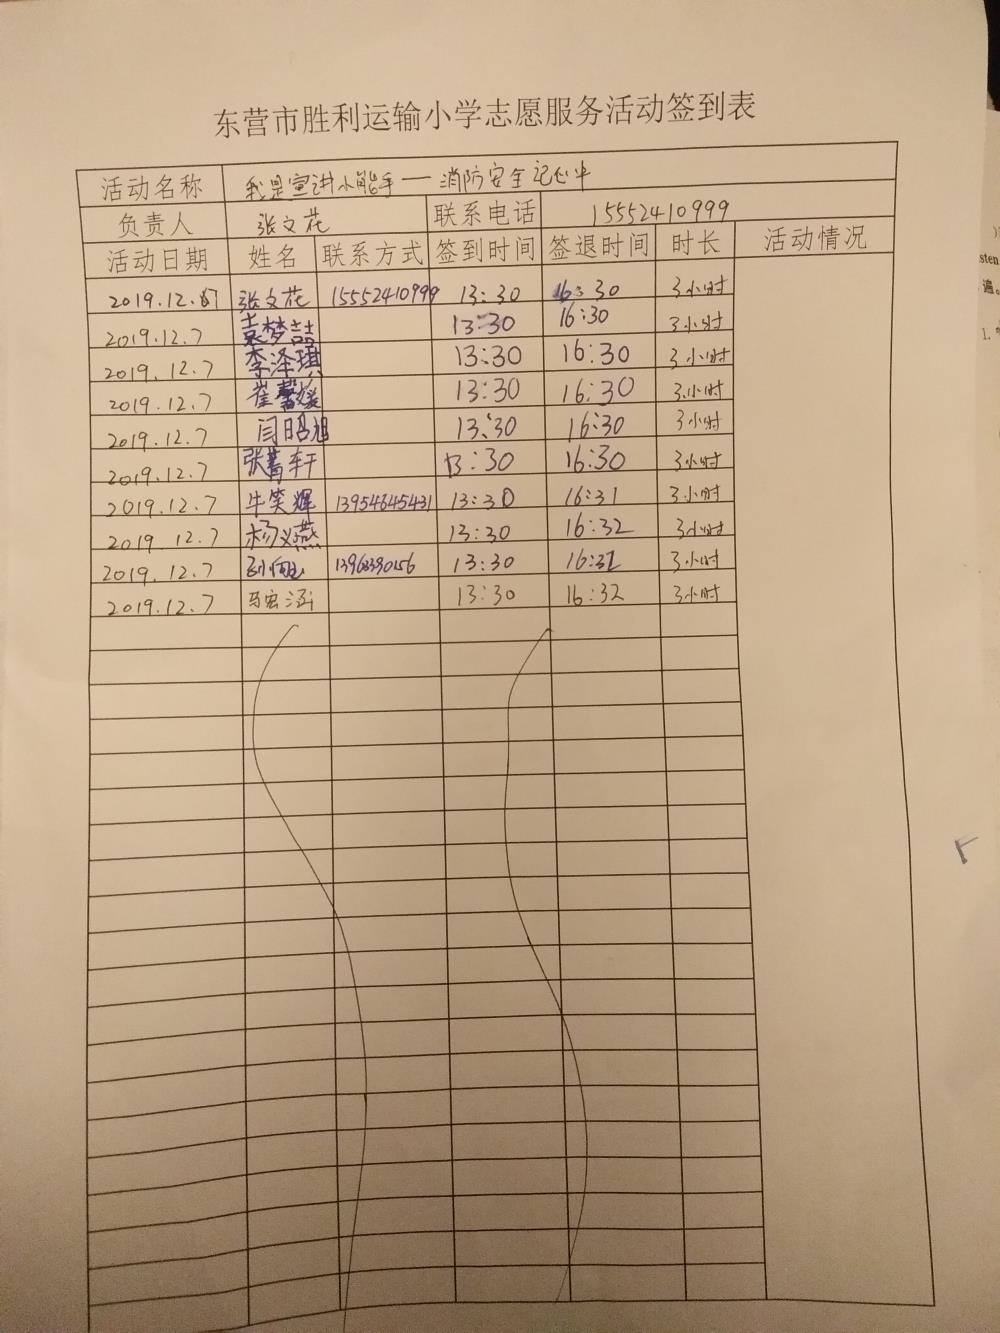 东营市胜利运输小学志愿服务活动签到表
活动名称 我是宣讲小能手——消防安全记心中
负责人 张文花 联系电话 15552410999
活动日期 姓名 联系方式 签到时间 签退时间 时长 活动情况
2019.12.7 张文花 15552410999 13:30 16:30 3小时
2019.12.7 袁梦喆 13:30 16:30 3小时
2019.12.7 李泽琪 13:30 16:30 3小时
2019.12.7 崔馨媛 13:30 16:30 3小时
2019.12.7 闫昭旭 13:30 16:30 3小时
2019.12.7 张菁轩 13:30 16:30 3小时
2019.12.7 牛笑辉 13954645431 13:30 16:31 3小时
2019.12.7 杨义燕 13:30 16:32 3小时
2019.12.7 13:30 16:32 3小时
2019.12.7 马宏涵 13:30 16:32 3小时
sten
遍。
1.